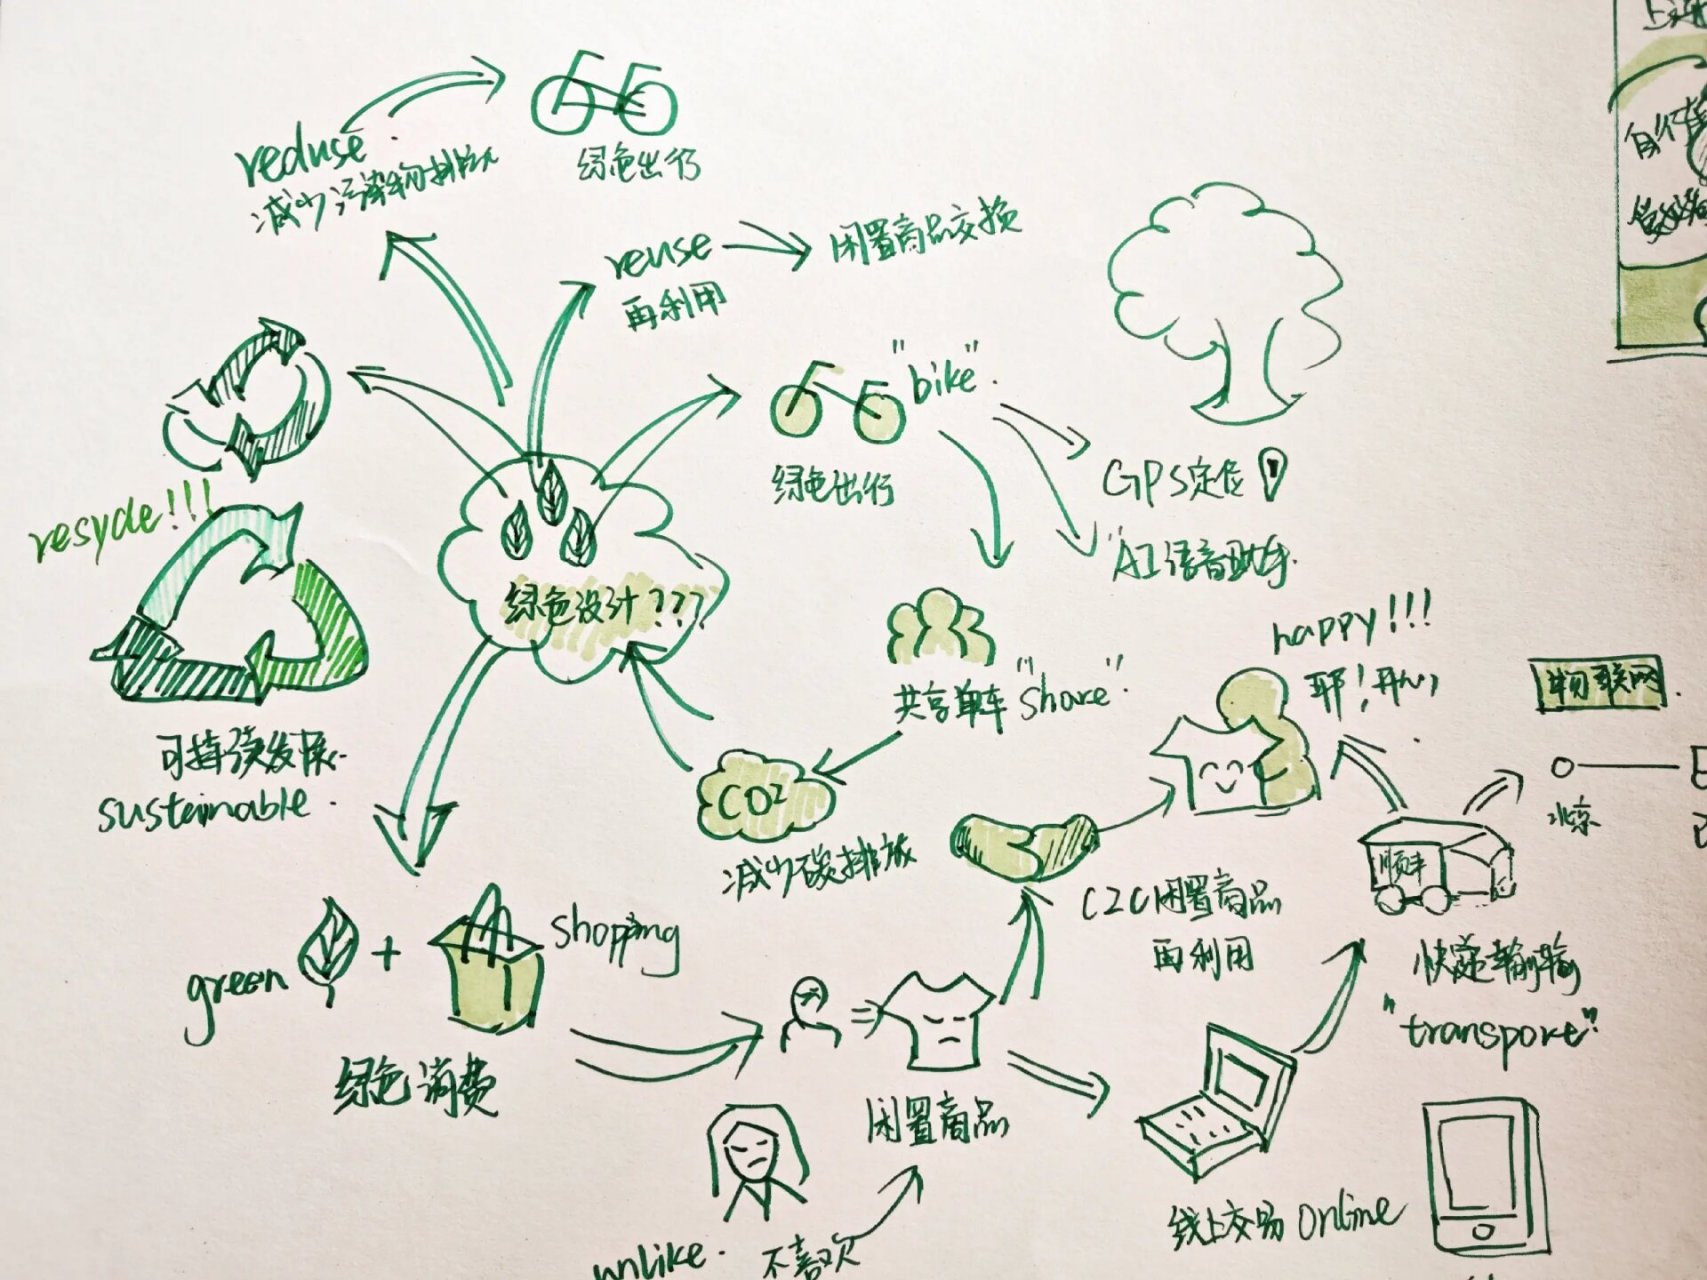 reduse.
减少污染物排放
绿色出行
reuse
再利用
闲置商品交换
"bike".
绿色出行
GPS定位
"AI语音助手.
resycle!!!
绿色设计???
可持续发展.
sustainable.
共享单车"share".
CO2
减少碳排放
happy!!!
耶!开心
物联网.
北京
顺丰
快递运输
"transport"
C2C闲置商品
再利用
green
+
shopping
绿色消费
=
闲置商品
unlike.
不喜欢
线上交易 online